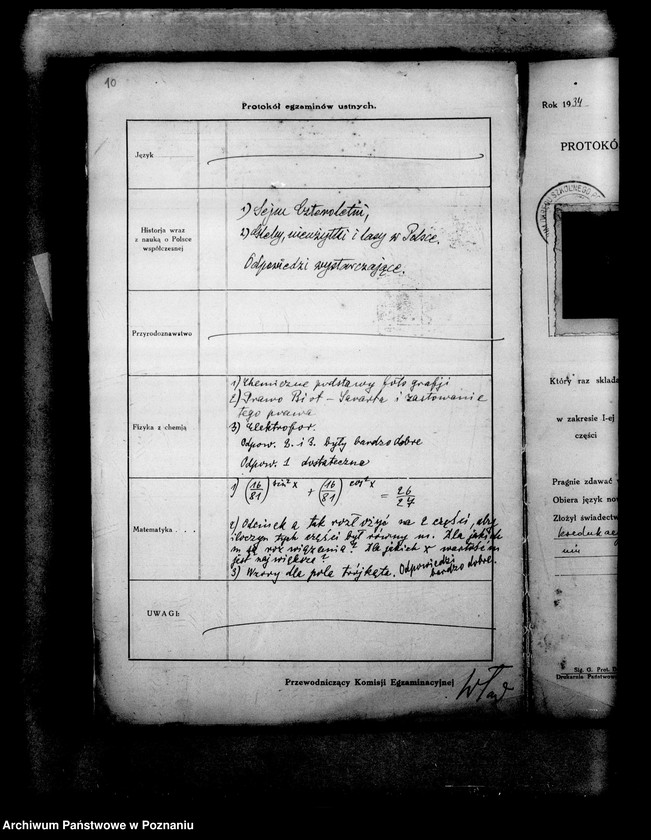 10
Protokół egzaminów ustnych.
Język
Historja wraz
z nauką o Polsce
współczesnej
1) Sejm Czteroletni,
2) Gleby, nieużytki i lasy w Polsce.
Odpowiedzi wystarczające.
Przyrodoznawstwo
Fizyka z chemją
1) Chemiczne podstawy fotografji
2) Prawo Biot – Savarta i zastowanie
tego prawa
3) Elektrofor.
Odpow. 2. i 3. były bardzo dobre
Odpow. 1 dostateczna
Matematyka . . . .
1) (16/81)^sin² x + (16/81)^cos² x = 26/27
2) Odcinek a tak rozłożyć na 2 części, aby
iloczyn tych części był równy m. Dla jakich
m są rozwiązania? Dla jakich x wartość m
jest największa?
3) Wzory dla pola trójkąta. Odpowiedzi
bardzo dobre.
UWAGI:
Przewodniczący Komisji Egzaminacyjnej
Rok 1934
PROTOKÓ
Który raz składa
w zakresie I-ej
części
Pragnie zdawać
Obiera język now
Złożył świadectw
koedukac
Sig. G. Prot. D
Drukarnia Państwowa
Archiwum Państwowe w Poznaniu